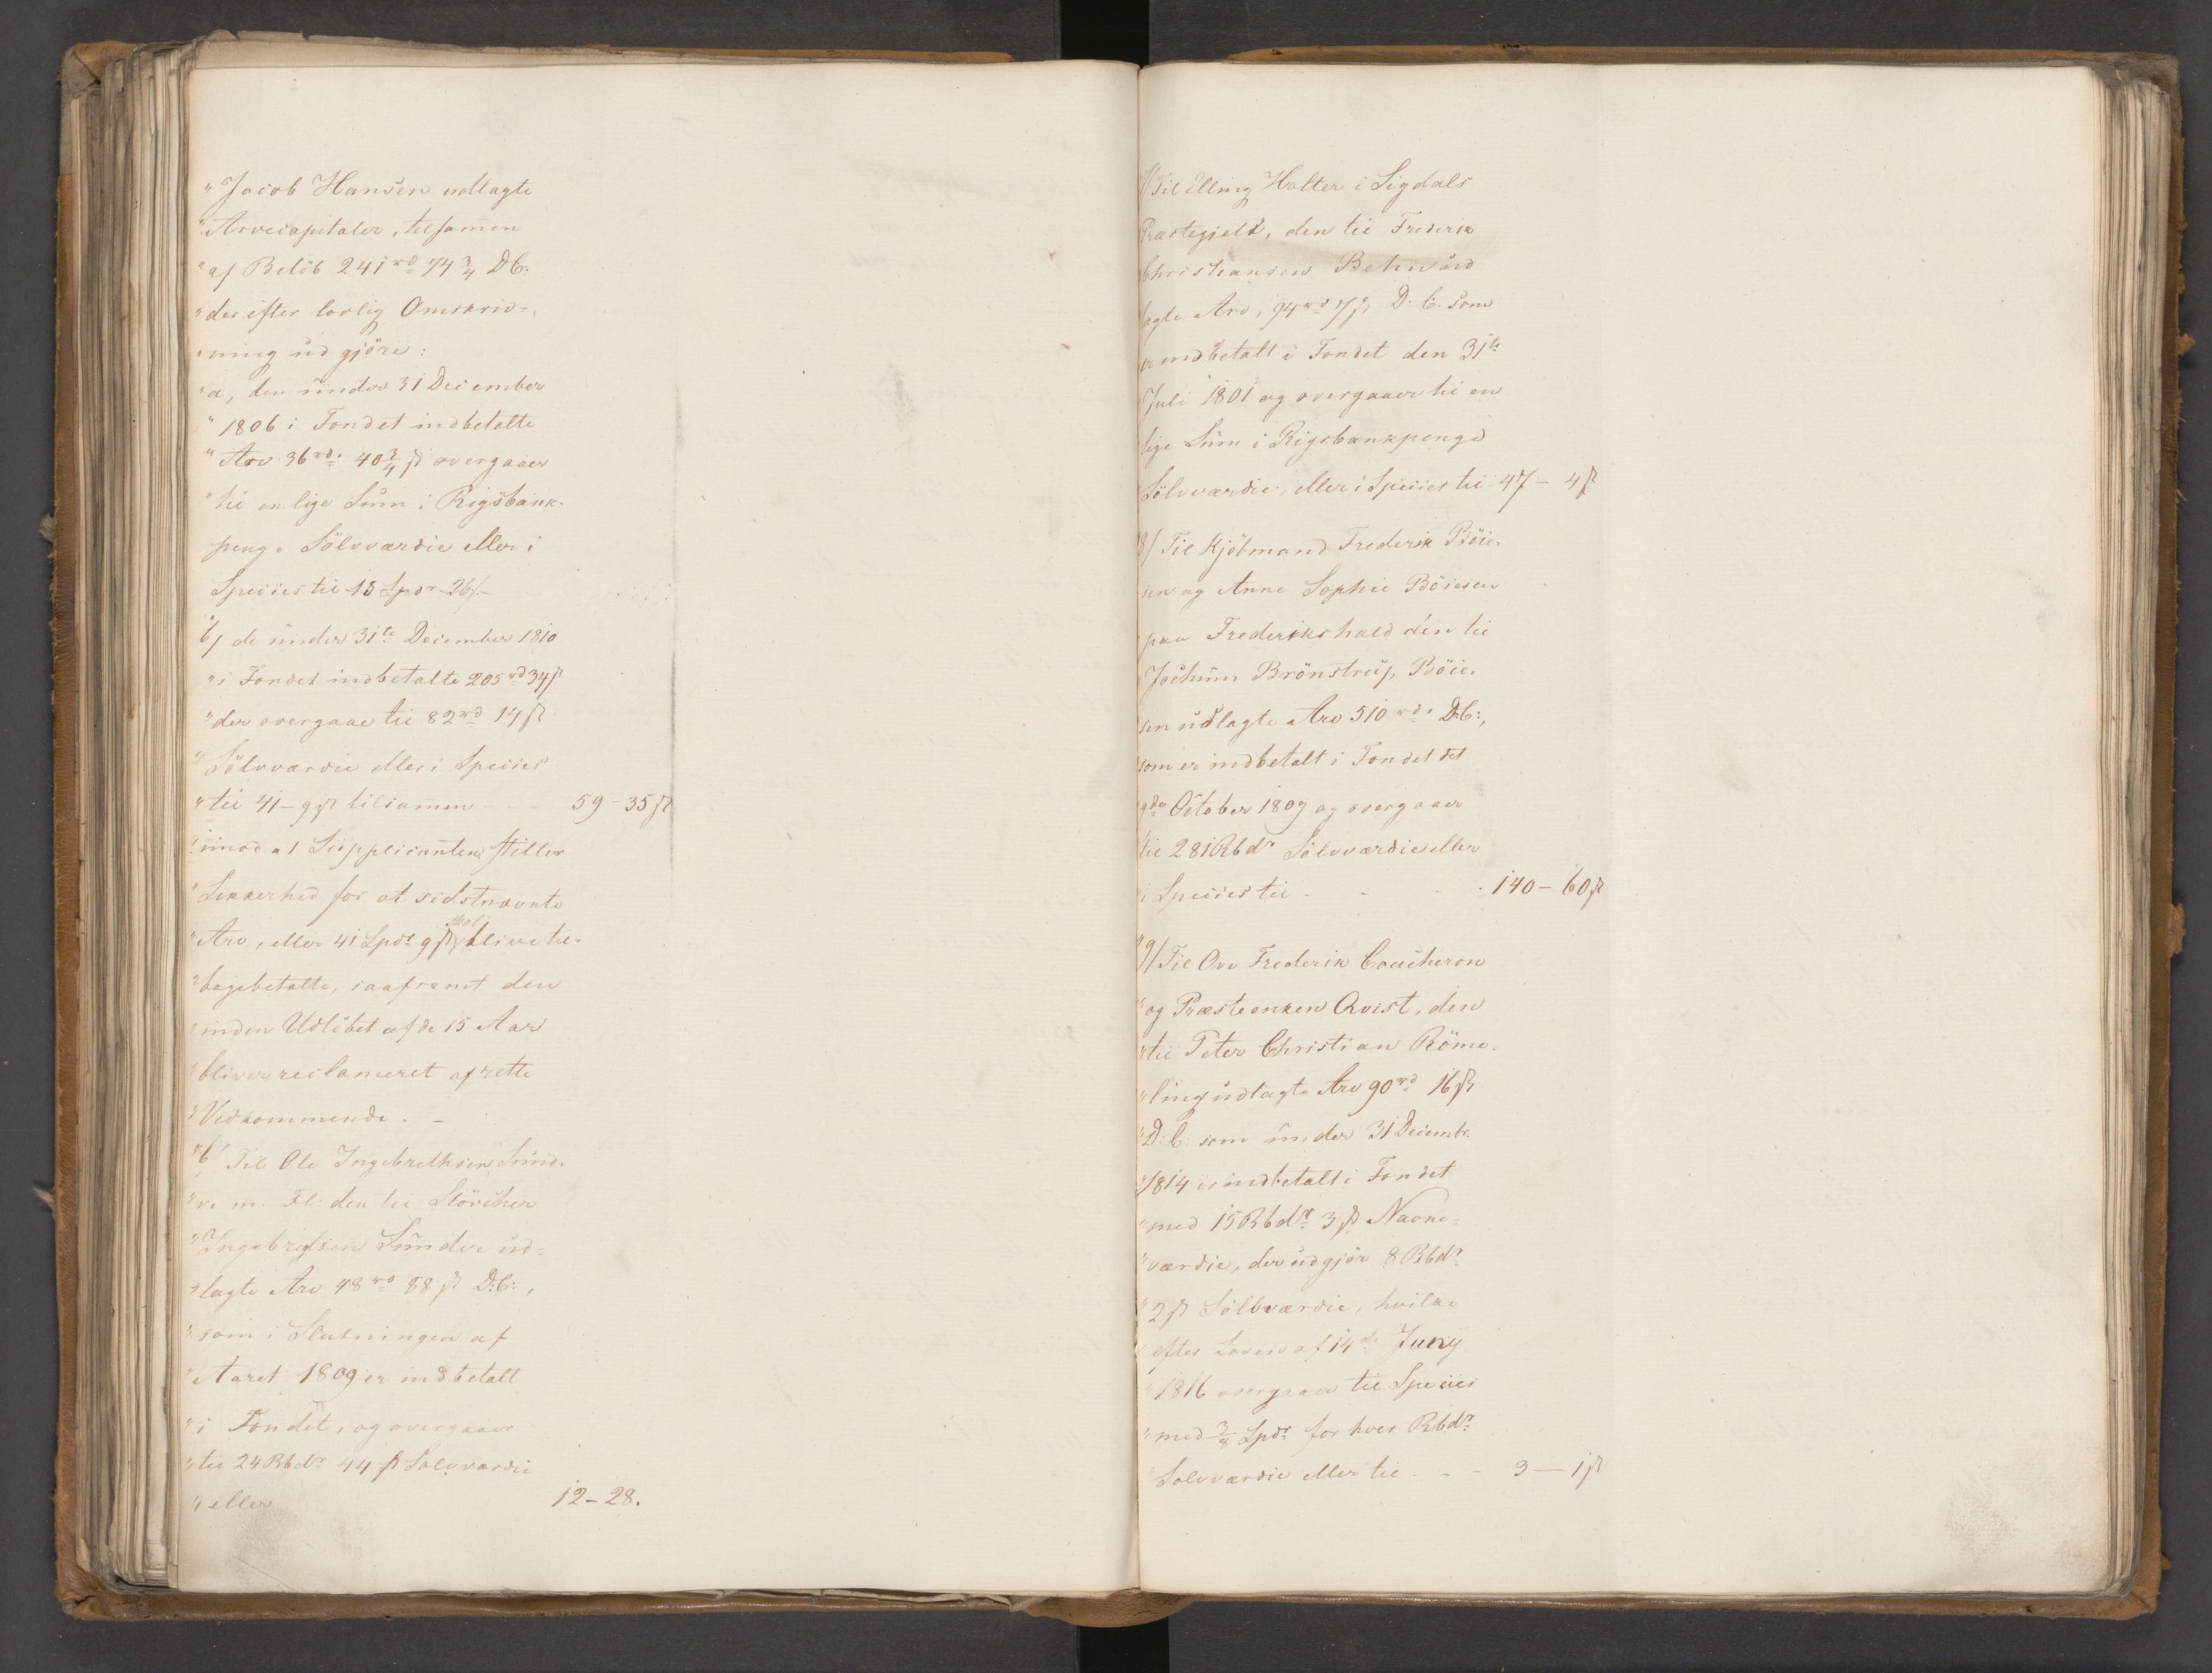 "Jacob Hansen udlagte
"Arvecapitaler, tilsamen
"af Beløb 241 rd 74 3/4 DC:
"der efter lovlig Omskriv-
"ning udgjøre:
"a, den under 31 December
"1806 i Fondet indbetalte
"Arv 36 rd. 40 3/4 ß overgaaer
"til en lige Sum i Rigsbank-
penge Sölvværdie eller i
Species til 18 Spdr 26 ß
"b/ de under 31te December 1810
"i Fondet indbetalte 205 rd 34 ß
"der overgaae til 82 rd 14 ß
"Sölvværdie eller i Species
"til 41 - 9 ß tilsammen - - 59 - 35 ß
"imod at Supplicanten stiller
"Sikkerhed for at sidstnævnte
"Arv, eller 41 Spdr 9 ß skal blive til-
"bagebetalte, saafremt den
"inden Udløbet af de 15 Aar
"bliver reclameret af rette
"Vedkommende. -
"6/ Til Ole Ingebrethsen Sund-
"re m. Fl: den til Störcker
"Ingebrethsen Sundre ud-
"lagte Arv 48 rd 88 ß D:C:,
"som i Slutningen af
"Aaret 1809 er indbetalt
"i Fondet, og overgaaer
"til 24 Rbdr 44 ß Sölvværdie
"eller 12 - 28.
7/ Til Elling Holter i Sigdals
Præstegjeld, den til Frederik
Christiansen ud
lagte Arv, 94 rd 7 ß D:C: som
er indbetalt i Fondet den 31te
Juli 1801 og overgaaer til en
lige Sum i Rigsbankpenge
Sölvværdie, eller i Species til 47 - 4 ß
8/ Til Kjöbmand Frederik Böie-
sen og Anne Sophie Böiesen
paa Frederikshald den til
Jochum Brönstrup Böie-
sen udlagte Arv 510 rd. D:C:,
som er indbetalt i Fondet det
9de October 1809 og overgaaer
til 281 Rbdr Sölvværdie eller
i Species til - - - 140 - 60 ß
"9/ Til Ove Frederik Coucheron
"og Præsteenken Qvist, den
"til Peter Christian Röme-
"ling udlagte Arv 90 rd 16 ß
"D:C: som under 31 Decembr.
"1814 er indbetalt i Fondet
"med 15 Rbdr 3 ß Navne-
"værdie, der udgjör 8 Rbdr
"2 ß Sölvværdie, hvilke
"efter Loven af 14de Juny
"1816 overgaaer til Species
"med 3/8 Spdr for hver Rbdr
"Sölvværdie eller til - - - 3 - 1 ß